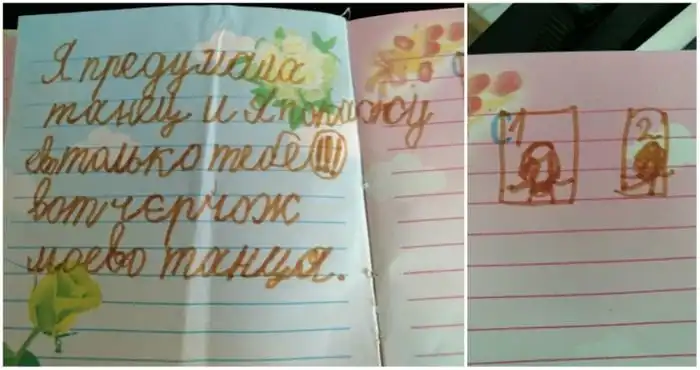 Я предумала
танец и я покажу
ево только тебе!!!
вот чєрчож
моево танца.
1
2